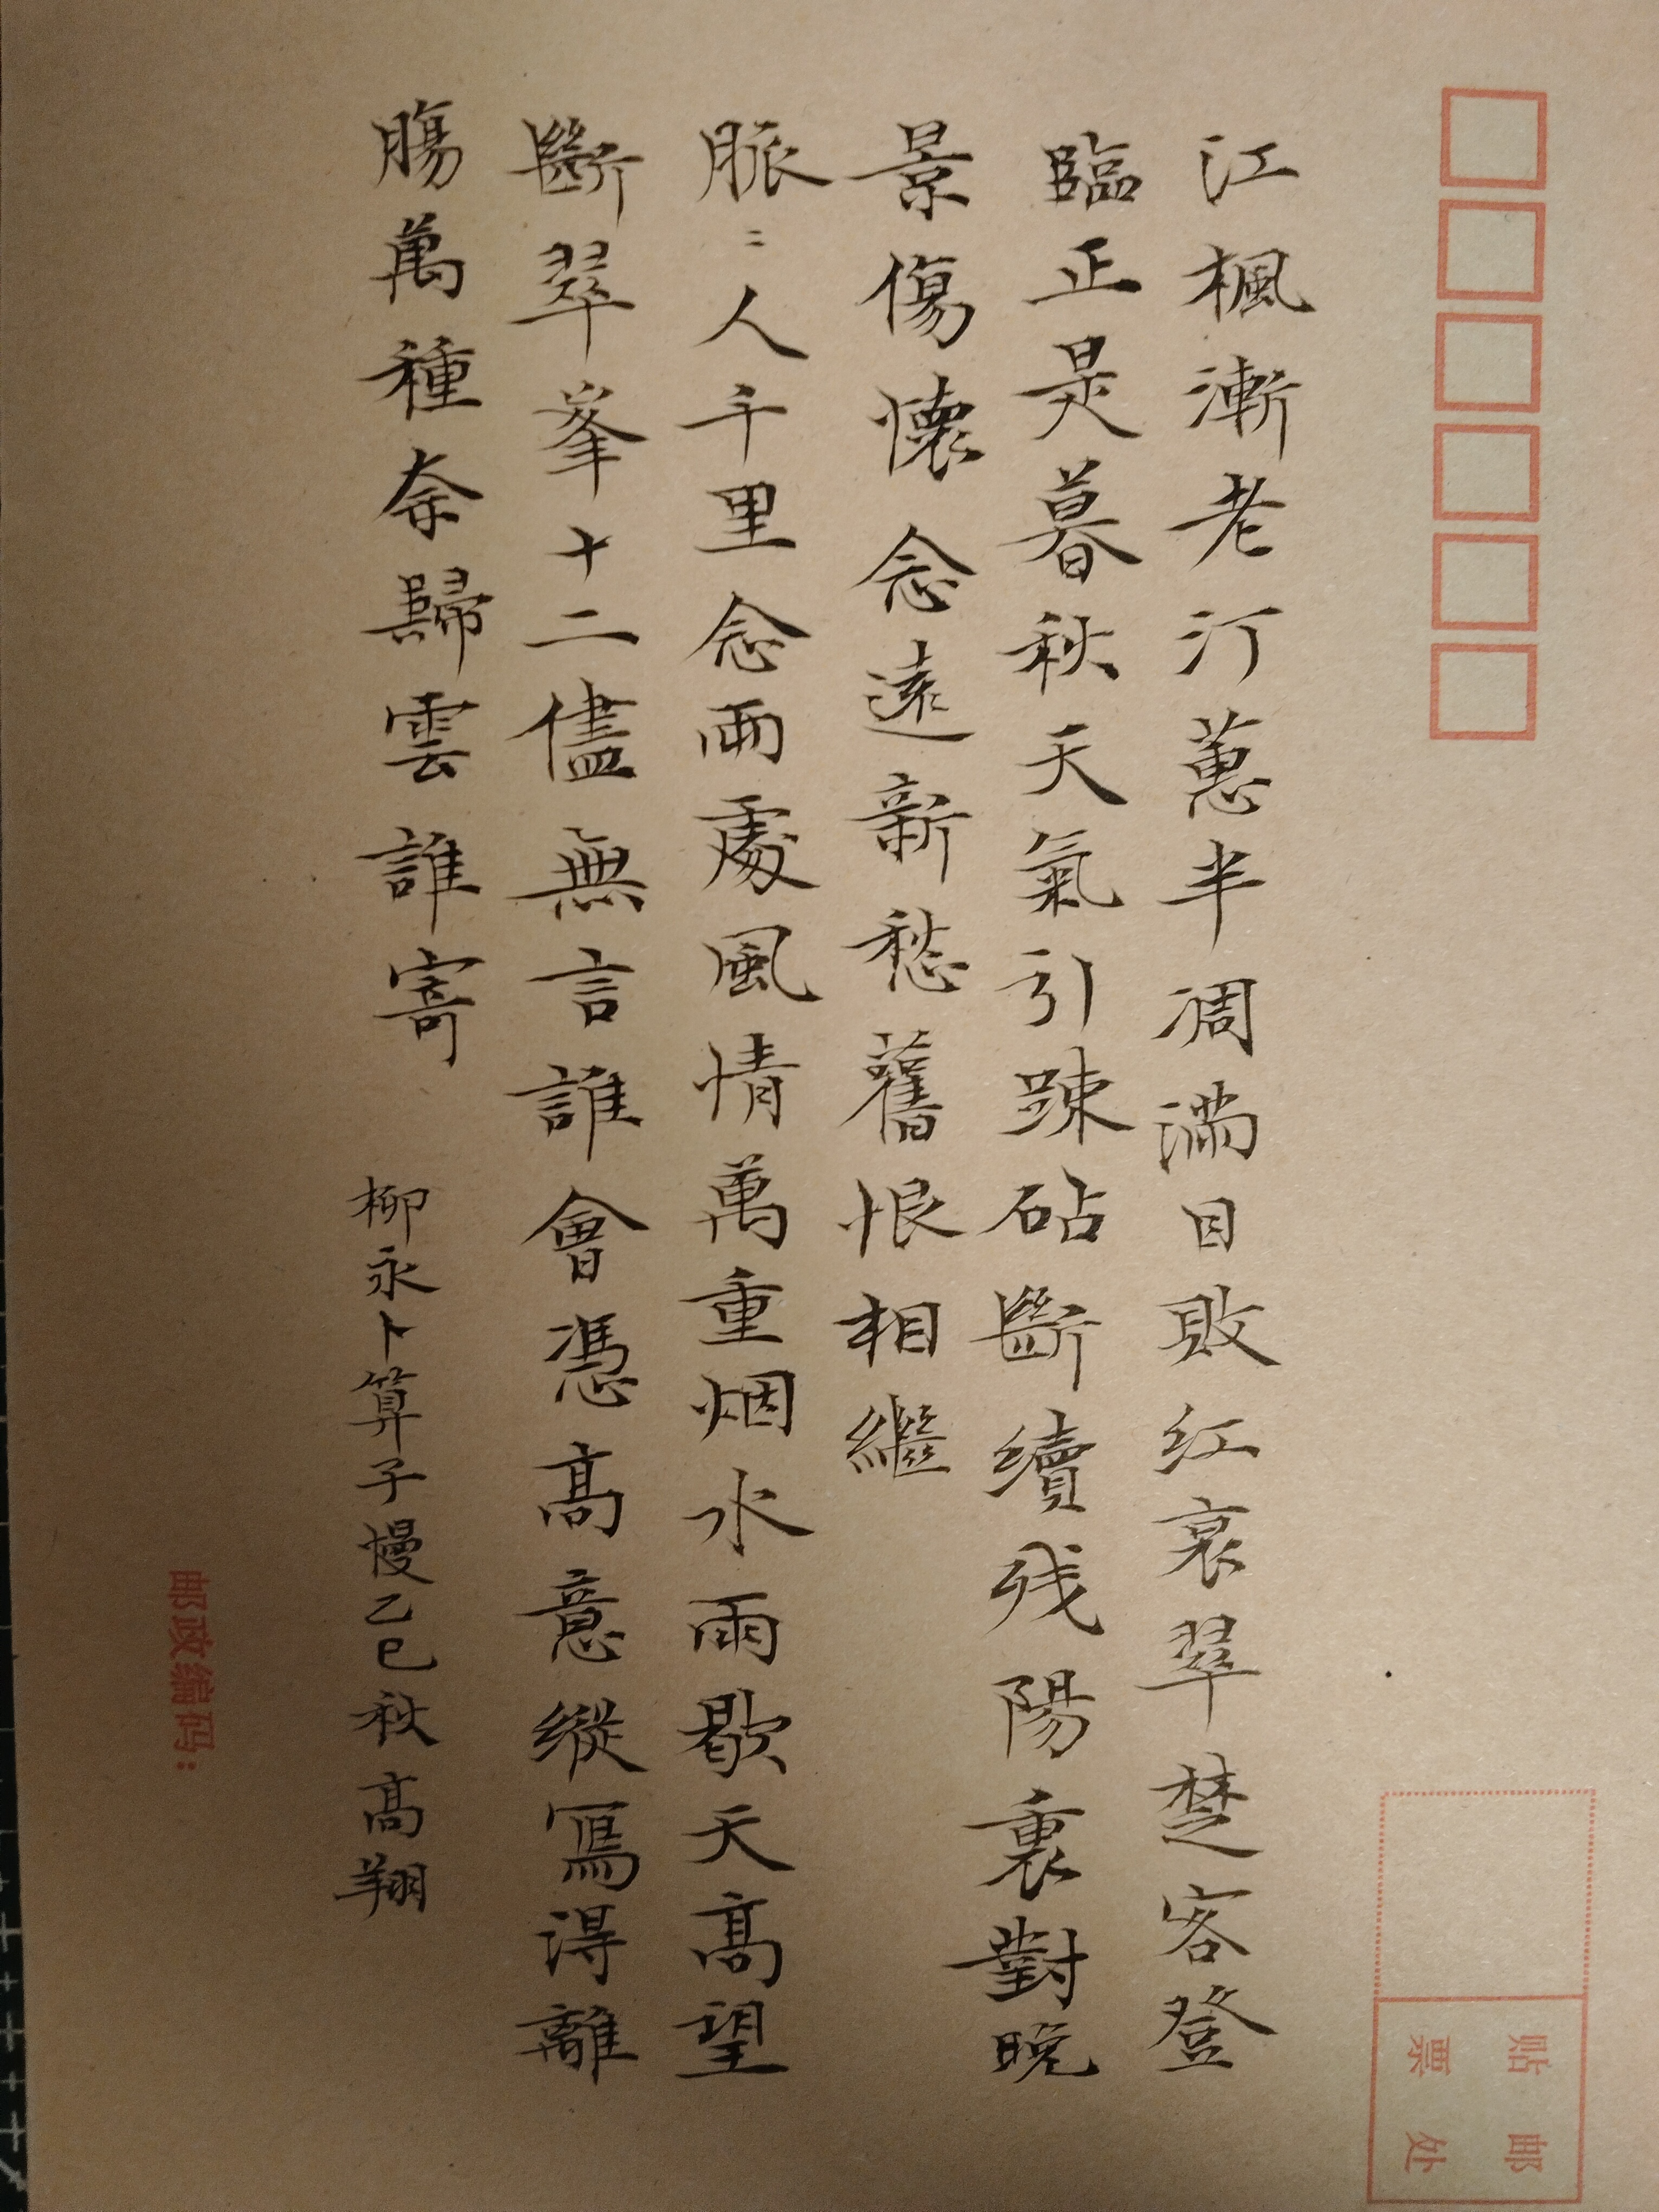 江楓漸老汀蕙半凋滿目敗红衰翠楚客登
臨正是暮秋天氣引踈砧斷續残陽裏對晚
景傷懷念遠新愁舊恨相繼
脈〻人千里念兩處風情萬重烟水雨歇天高望
斷翠峯十二儘無言誰會憑高意縱寫得離
腸萬種奈歸雲誰寄
柳永卜算子慢乙巳秋高翔
贴邮
票处
邮政编码: